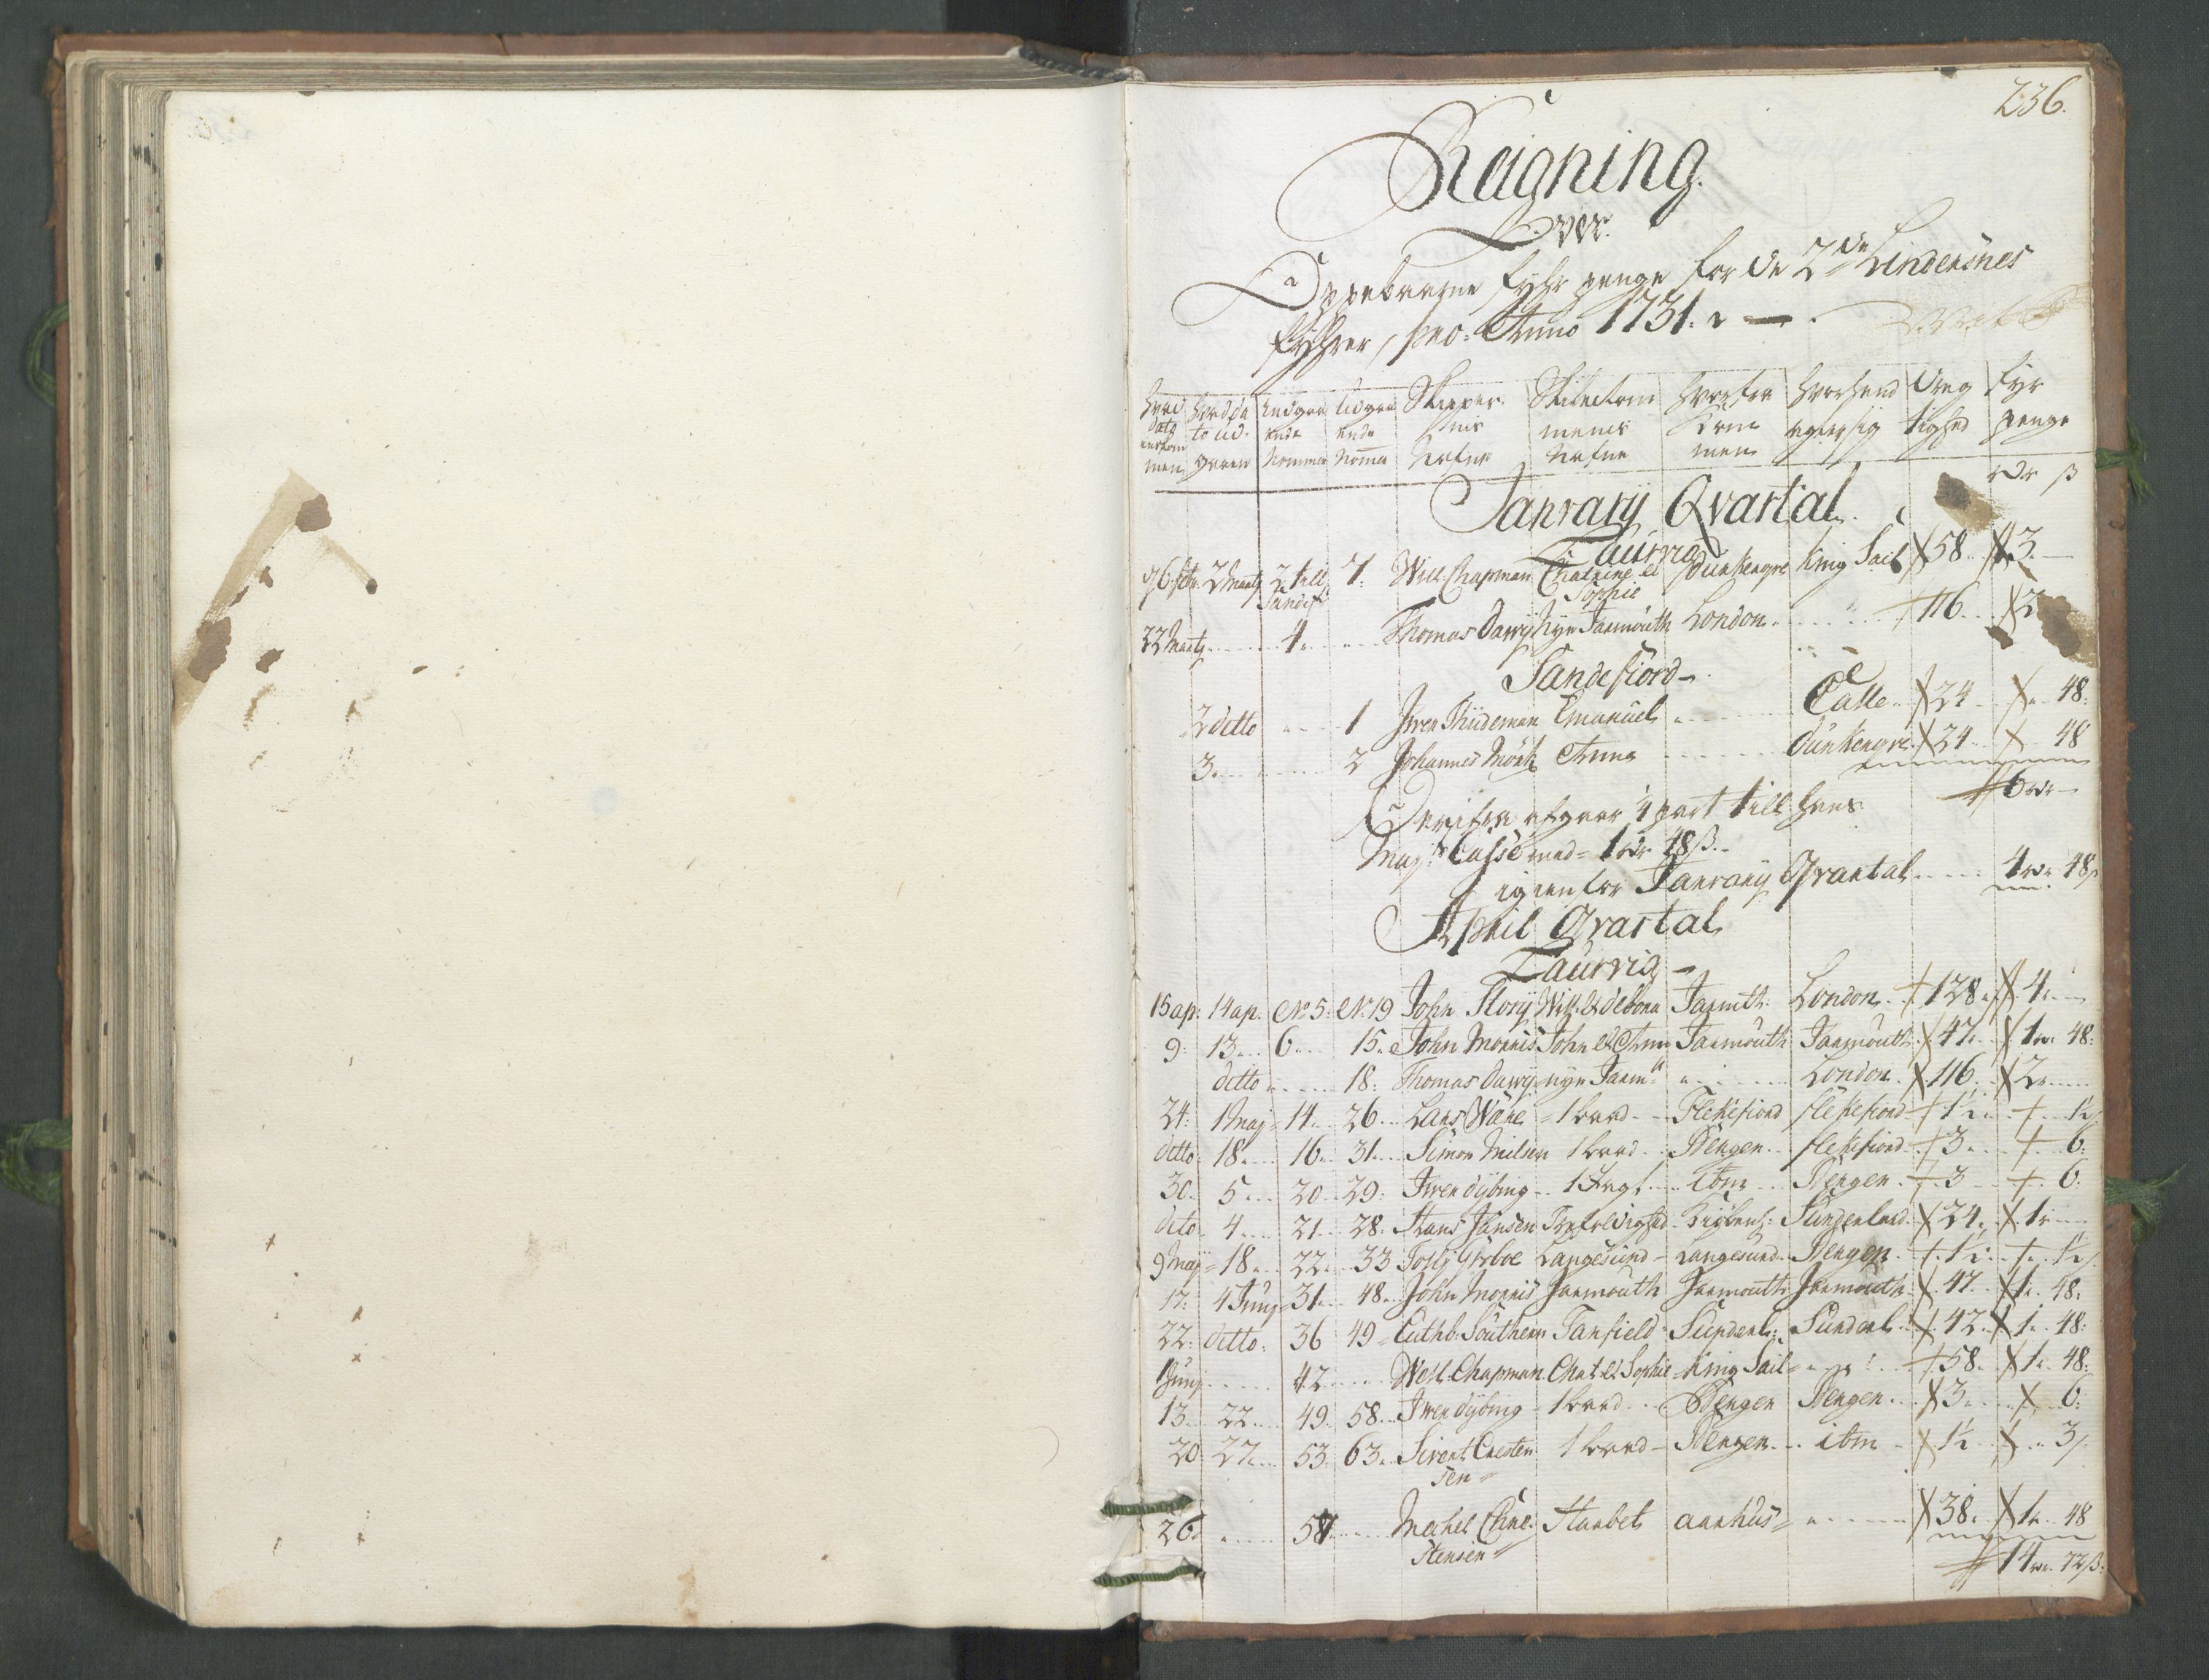 236.
Reigning.
Over
Oppebaarne fyhr penge for de 2de Lindersnes
fyhrer, pro: Anno 1731.
hvad dato ankommen hvad dato ud- gaaen Indgaaende Nomma udgaaende Noma Skippernes Nafne Skibe Nafne hvorfra Kommen hvorhend Dreg tighed fyr penge
rdr ß
Janvarij Qvartal.
Laurvig
2 Martij 7. Will. Chapman Chatrine et Sophie Dunkerqve King Sail 58 3
22 Martij 4. Thomas Davij Nye Jarmouth London 116 2
Sandefiord
2 ditto 1 Iver Thideman Emanuel Calle 24 48
3 2 Johannes Mörk Anna Dunkerqve 24 48
6 rdr
Derifra afgaar 1/4 part till hans
Mayts Casse med 1 rdr 48 ß.
igien for Janvarij Qvartal 4 rdr 48 ß
April Qvartal
Laurvig
15 ap: 14 ap. No 5: No 19 John Storij Will. et debora Jarmth: London 128 4
9 13 6 15 John Morris John et Ann Jarmouth Jarmouth 47 1 rdr 48
ditto 18 Thomas Davij nye Jarm: London 116 2
24 1 Maj 14 26 Lars Wane 1 baad Flekefiord flekefiord 1½ 1½
ditto 18 16 31 Simon Nilsen 1 baad Bergen flekefiord 3 6
30 5 20 29 Iver dybing 1 Jagt ibm Bergen 3 6
dito 4 21 28 Hans Jansen Trefoldighed Kiøbenh: Sunderland 24 1
9 Maij 18 22 33 Langesund Langesund Bergen 1½ 1½
17 4 Junij 31 48 John Morris Jarmouth Jarmouth Jarmouth 47 1 48
22 ditto 36 49 Cuthb. Southern Tanfield Sunderl: Sunderl 42 1 48
1 Junij 42 Will. Chapman Chat et Sophie King Sail 58 1 48
13 22 49 58 Iver dybing 1 baad Bergen Bergen 3 6
20 27 53 63 Sivert Christensen 1 baad Bergen ibm 1½ 3
26 Michel Christensen Haabet aarhus 38 1 48
14 rdr 72 ß